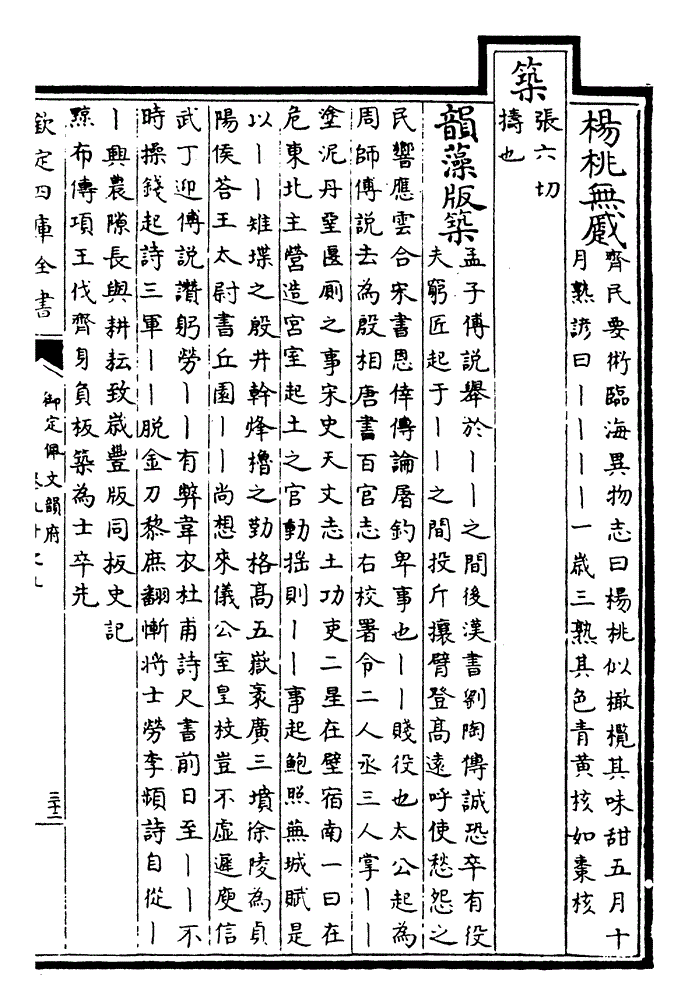 楊桃無蹙
齊民要術臨海異物志曰楊桃似橄欖其味甜五月十
月熟諺曰丨丨丨丨一歲三熟其色青黄核如棗核
築
張六切
擣也
韻藻版築
孟子傅説舉於丨丨之間後漢書劉陶傳誠恐卒有役
夫窮匠起于丨丨之間投斤攘臂登髙遠呼使愁怨之
民響應雲合宋書恩倖傳論屠釣卑事也丨丨賤役也太公起為
周師傅説去為殷相唐書百官志右校署令二人丞三人掌丨丨
塗泥丹堊匽廁之事宋史天文志土功吏二星在壁宿南一曰在
危東北主營造宫室起土之官動揺則丨丨事起鮑照蕪城賦是
以丨丨雉堞之殷井幹烽櫓之勤格髙五嶽袤廣三墳徐陵為貞
陽侯荅王太尉書丘園丨丨尚想來儀公室皇枝豈不虚遲庾信
武丁迎傅説讚躬勞丨丨有弊韋衣杜甫詩尺書前日至丨丨不
時操錢起詩三軍丨丨脱金刀黎庶翻慚将士勞李頻詩自從丨
丨興農隙長與耕耘致歳豐版同板史記
黥布傳項王伐齊身負板築為士卒先
欽定四庫全書
御定佩文韻府
三十二